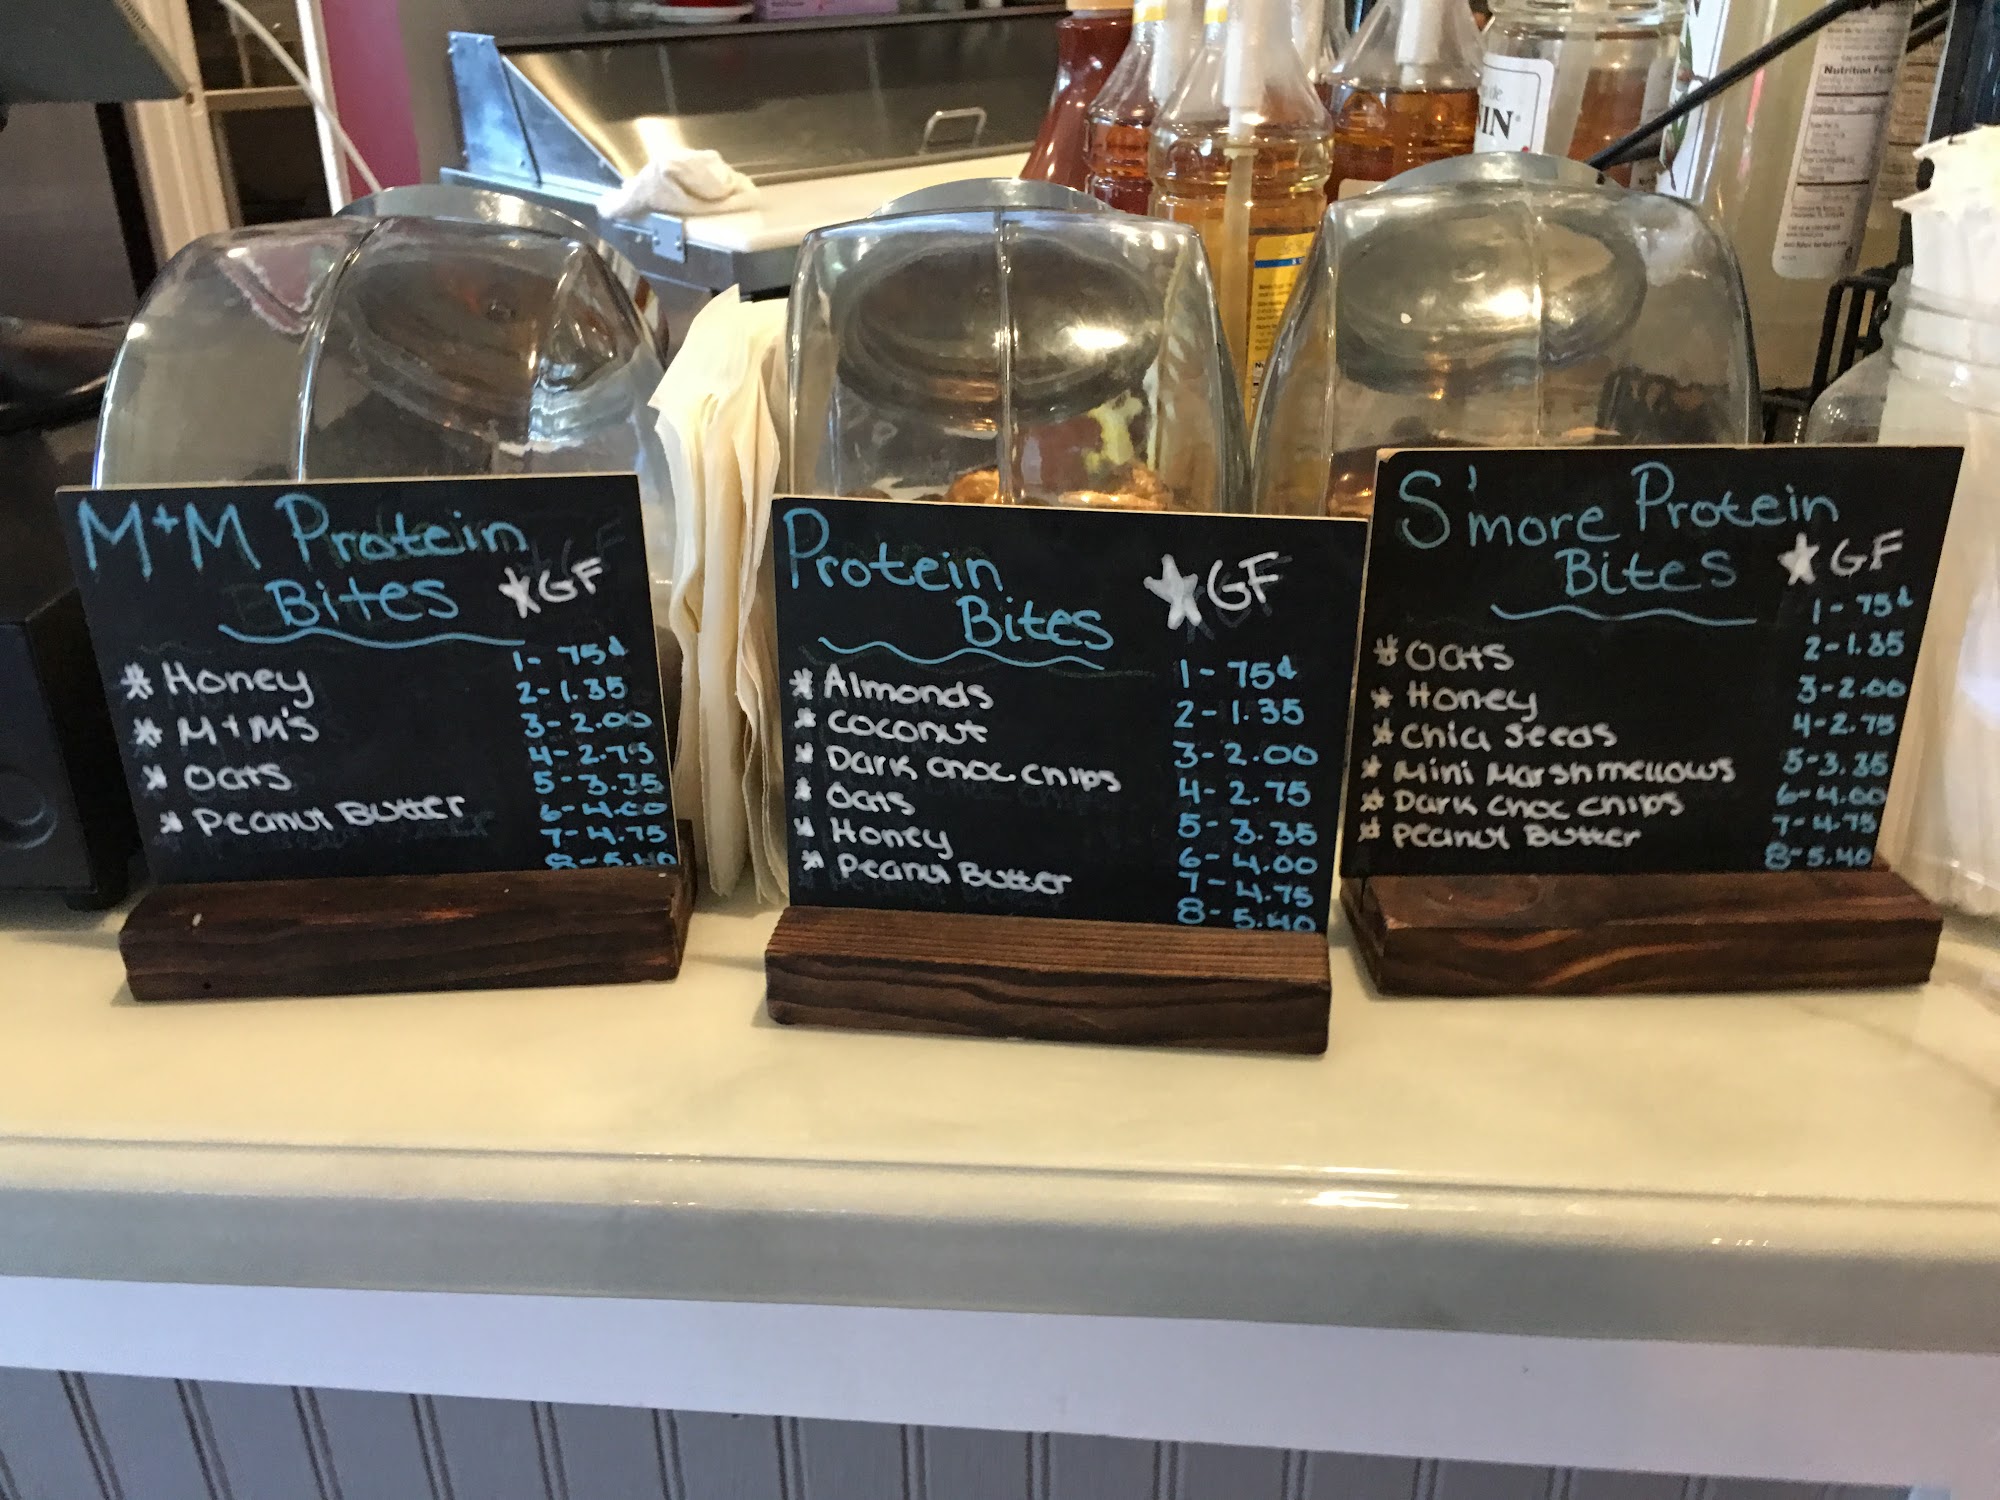 M+M Protein
Bites
*GF
* Honey
* M+M's
* Oats
* Peanut Butter
1- 75¢
2-1.35
3-2.00
4-2.75
5-3.35
6-4.00
7-4.75
8-5.40
Protein
Bites
*GF
* Almonds
* Coconut
* Dark Choc Chips
* Oats
* Honey
* Peanut Butter
1- 75¢
2-1.35
3-2.00
4-2.75
5-3.35
6-4.00
7-4.75
8-5.40
S'more Protein
Bites
*GF
* Oats
* Honey
* Chia Seeds
* Mini Marshmellows
* Dark Choc Chips
* Peanut Butter
1-75¢
2-1.35
3-2.00
4-2.75
5-3.35
6-4.00
7-4.75
8-5.40
Nutrition Facts